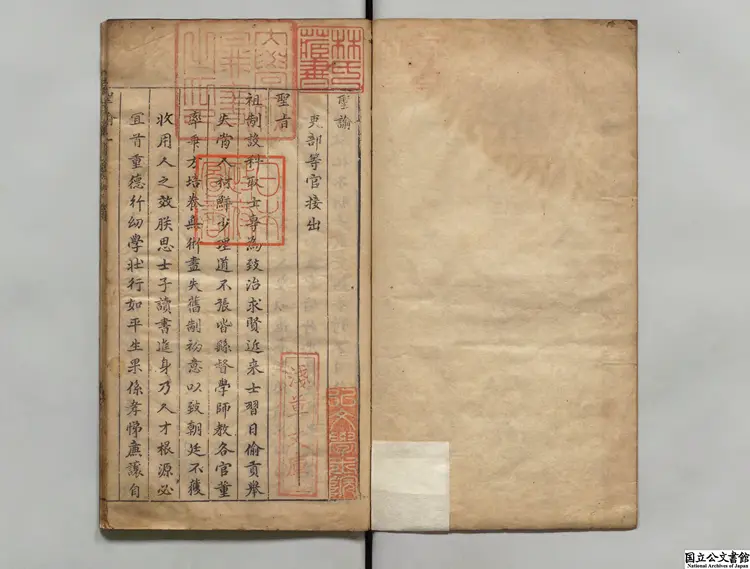 聖諭
部等官接出
聖旨
祖制設科取士專為致治求賢近來士習日偷貢舉
失當人材鮮少理道不張皆繇督學師教各官董
率乖方培養無術盡失舊制初意以致朝廷不獲
收用人之效朕思士子讀書進身乃人才根源必
宜首重德行幼學壯行如平生果係孝悌廉讓自
林氏藏書
日本政府圖書
淺草文庫
弘文學士院
国立公文書館
National Archives of Japan